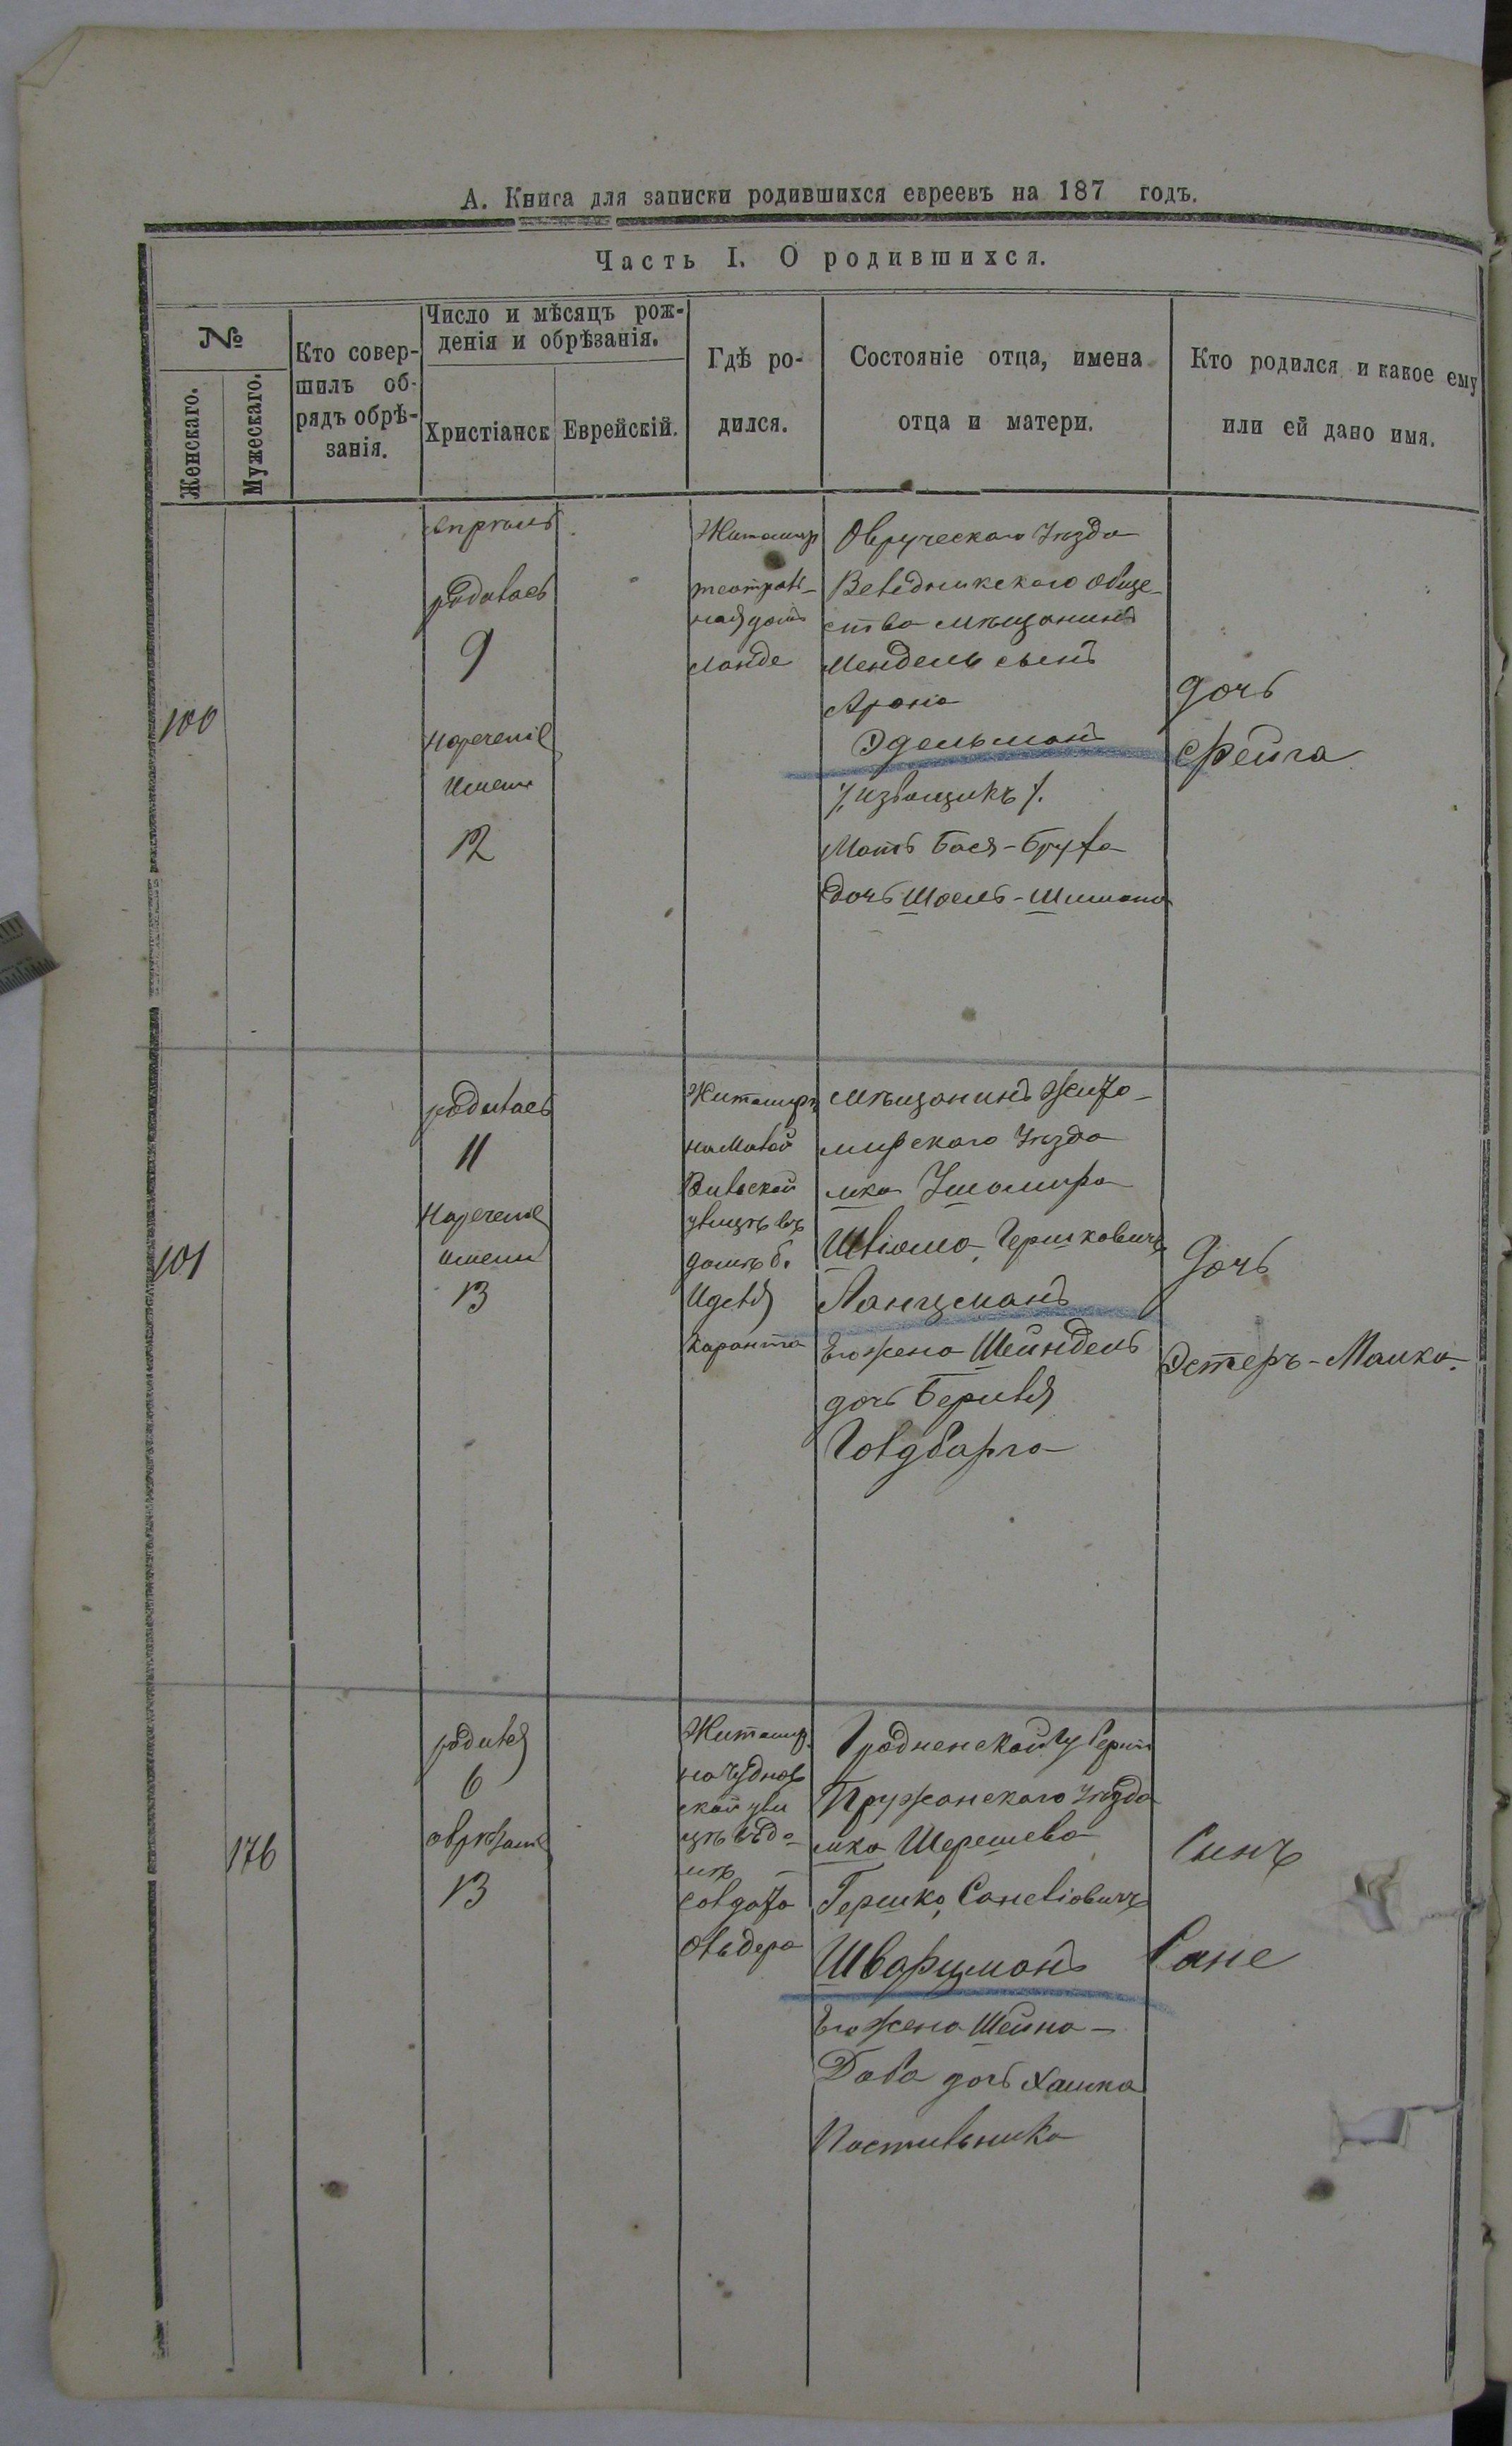 А. Книга для записки родившихся евреевъ на 187 годъ.
Часть I. О родившихся.
№
Женскаго.
Мужескаго.
Кто совер-
шилъ об-
рядъ обрѣ-
занія.
Число и мѣсяцъ рож-
денія и обрѣзанія.
Христіанск
Еврейскій.
Гдѣ ро-
дился.
Состояніе отца, имена
отца и матери.
Кто родился и какое ему
или ей дано имя.
100
Апрѣль
родилась
9
Нареченіе
Имени
12
Житомир
домъ
Ланде
Овруческаго Уѣзда
Веледникскаго Обще-
ства мѣщанинъ
Мендель сынъ
Арона
Эдельманъ
/. извощикъ /.
Мать Бася-Бруха
дочь Шоель-Шимона
дочь
Фейга
101
родилась
11
Нареченіе
имени
13
Житомиръ
на Малой
Вильской
улицѣ въ
домѣ б.
Иделя
Каранта
мѣщанинъ Жито-
мирскаго Уѣзда
мка Ушомира
Шліома Гершковичъ
Ланцманъ
Его жена Шейндель
дочь Бериля
Голдбарга
Дочь
Эстеръ-Малка.
176
родился
6
обрѣзаніе
13
Житомир.
на Чуднов
ской ули
цѣ въ до-
мѣ
солдата
Ольдера
Гродненской Губерніи
Пружанскаго Уѣзда
мка Шерешева
Гершко Санеліовичъ
Шварцманъ
Его жена Шейна-
Доба дочь Хаима
Постильника
Сынъ
Сане